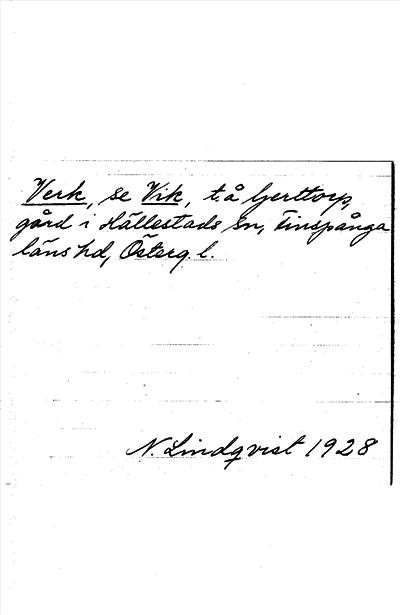 Verk, se Vik, t.å Gerttorp,
gård i Hällestads sn, Finspånga
läns hd, Österg. l.
N. Lindqvist 1928